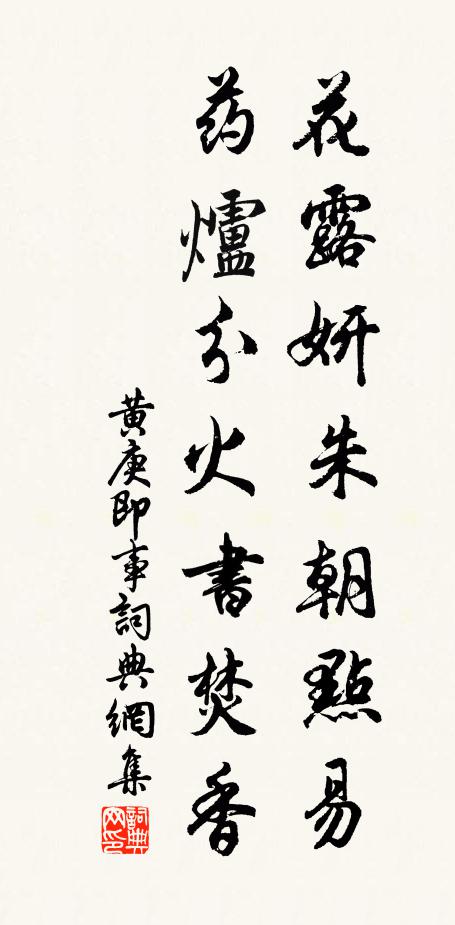 花露妍朱朝點易
药爐分火書焚香
黄庚即事詞典網集
詞典網印